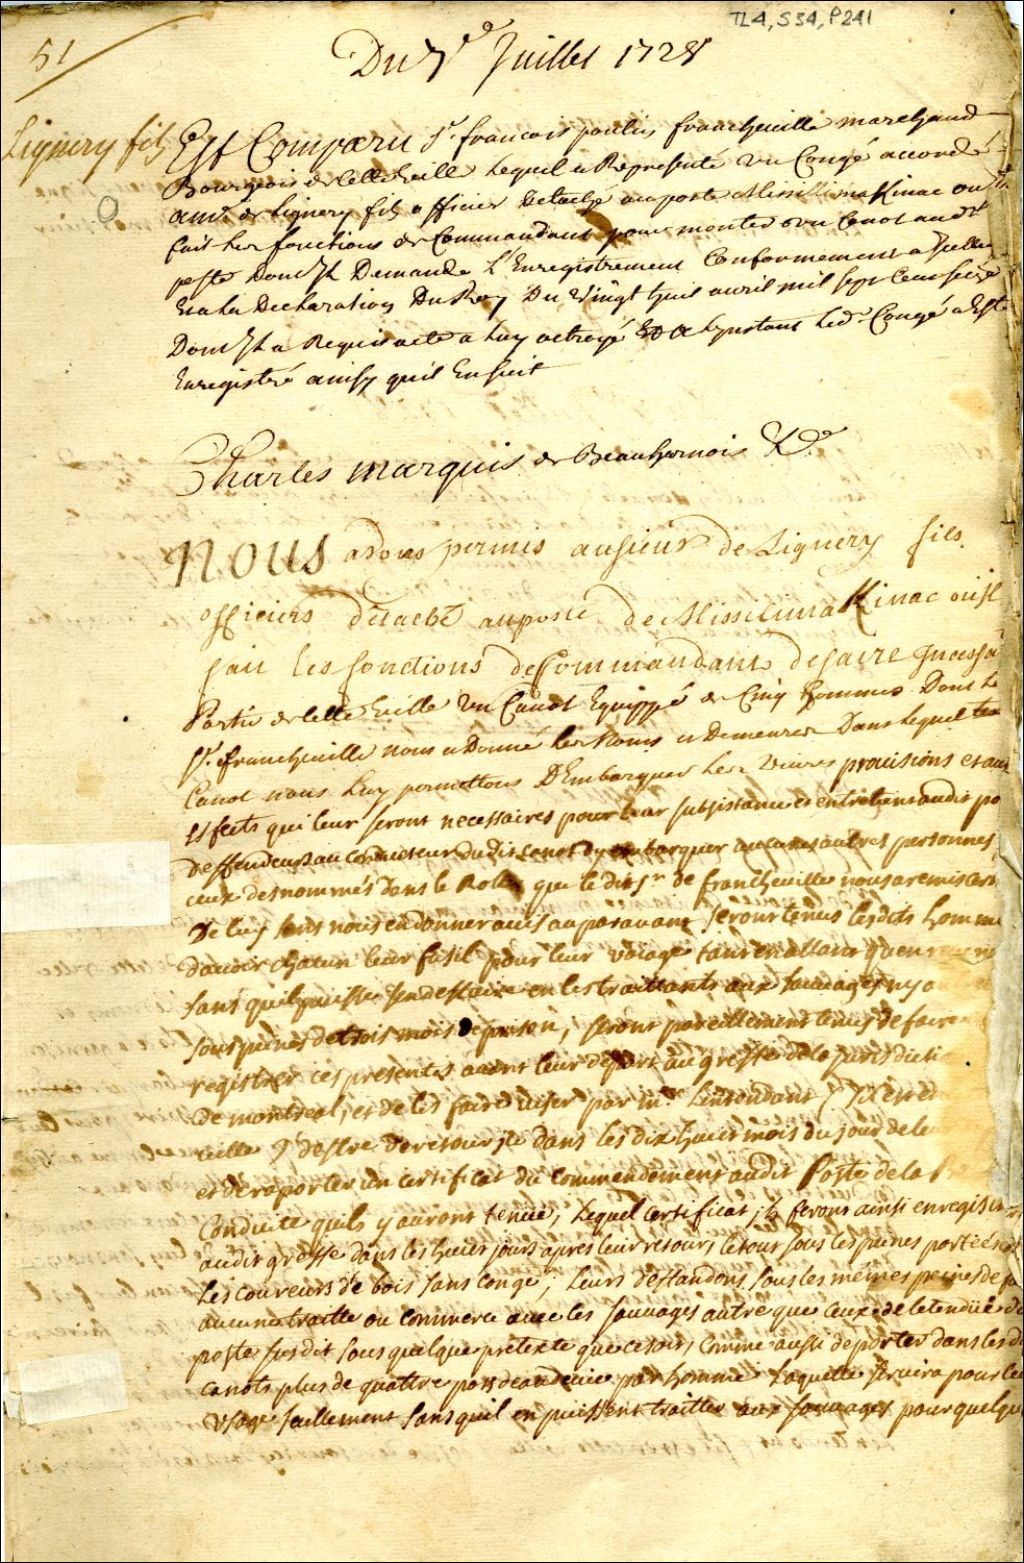 TL4, S34, P241
51
Du 7e Juillet 1728
Lignery fils
Est Comparu Sr. francois poulin francheville marchand
Bourgeois de Cette ville Lequel a Representé un Congé accordé
au Sr. de Lignery fils officier Detaché au poste Missillimakinac ou Il
fait Les fonctions de Commandant pour monter un Canot audt.
poste Dont Il Demande L'Enregistrement Conformement a Icelluy
Et a La Declaration Du Roy Du Vingt huit avril mil Sept Cent Seize
Dont Il a Requis acte a Luy octroyé Et a Lynstant Led. Congé a Esté
Enregistré ainsy quil Ensuit
Charles marquis de Beauharnois &a.
Nous avons permis au sieur de Lignery fils
officiers détaché au poste de Missilimakinac ou il
fait les fonctions de Commandant de faire Incessa
Partir de Cette ville un Canot Equippé de Cinq hommes Dont Le
Sr. francheville nous a Donné Les Noms et Demeures Dans Lequel
Canot nous Luy permettons D'Embarquer Les Vivres provisions et aut
Effects qui leur seront necessaires pour leur subsistance et entretien audit po
deffendeus au conducteur dudit canot dy embarquer aucunes autres personnes
ceux desnommés dans le Rolle que le dit Sr de francheville nous a remis
De luy sans nous en donner avis auparavant seront tenus lesdits homme
d'avoir chacun leur fusil pour leur voiage tant en allant qu'en
sans quil puisse sen deffaire en les traittants aux sauvages ny
sous peines de trois mois de prison, seront pareillement tenus de faire
registrer ces presentes avant leur depart au greffe de la jurisdicti
de montreal, et de les faire viser par mr. Lintendant
ville, d'estre de retour dans les dix huit mois du jour de le
et de raporter un certificat du Commendement audit Poste de la
Conduite quils y auront tenue, Lequel Certificat ils feront ainsi enregistrer
audit greffe dans les huit jours apres leur retour, le tout sous les peines portées
Les coureurs de bois sans congé; Leurs deffandons, sous les mêmes peines de f
aucune traitte ou commerce avec les sauvages autre que ceux de letendüe d
poste susdit sous quelque pretexte que ce soit, Comme aussi de porter dans lesd
canots plus de quattre pots deaudevie par homme Laquelle servira pour leu
usage seullement sans quil en puissent traitter aux sauvages pour quelqu